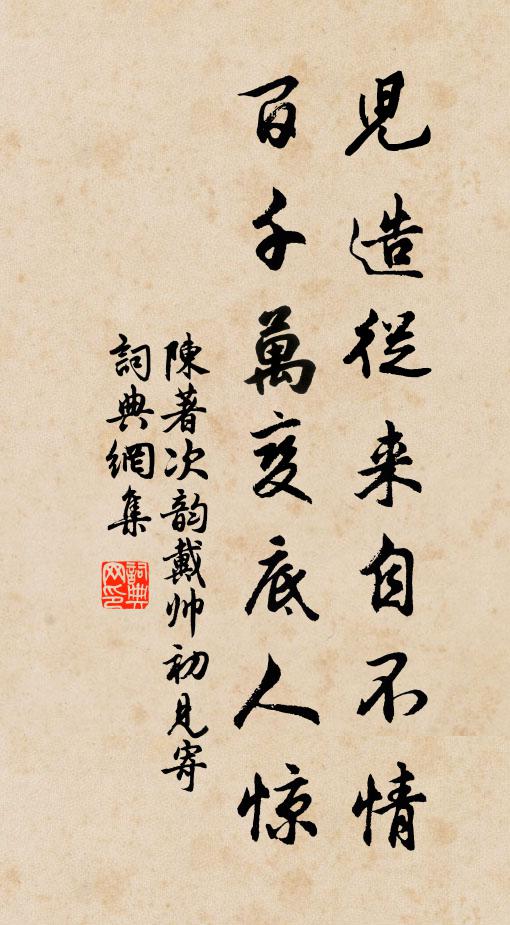 児造從来自不情
百千萬变底人惊
陳著次韵戴帅初見寄
詞典網集
詞典网印